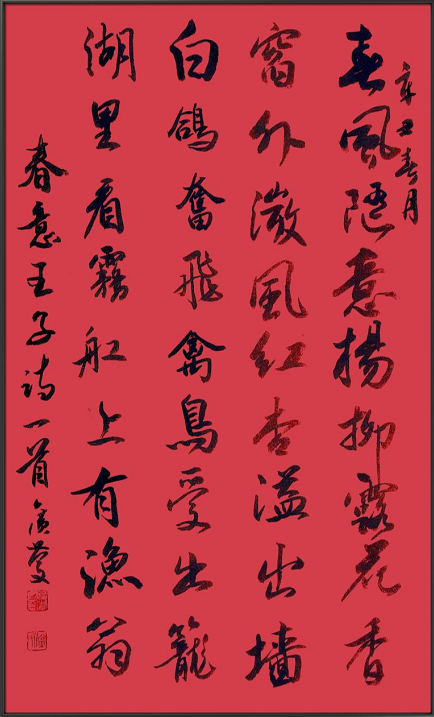 辛丑春月
春風随意揚柳露花香
窗外微風紅杏溢出墻
白鴿奮飛禽鳥受出籠
湖里看霧舡上有漁翁
春意王子诗一首